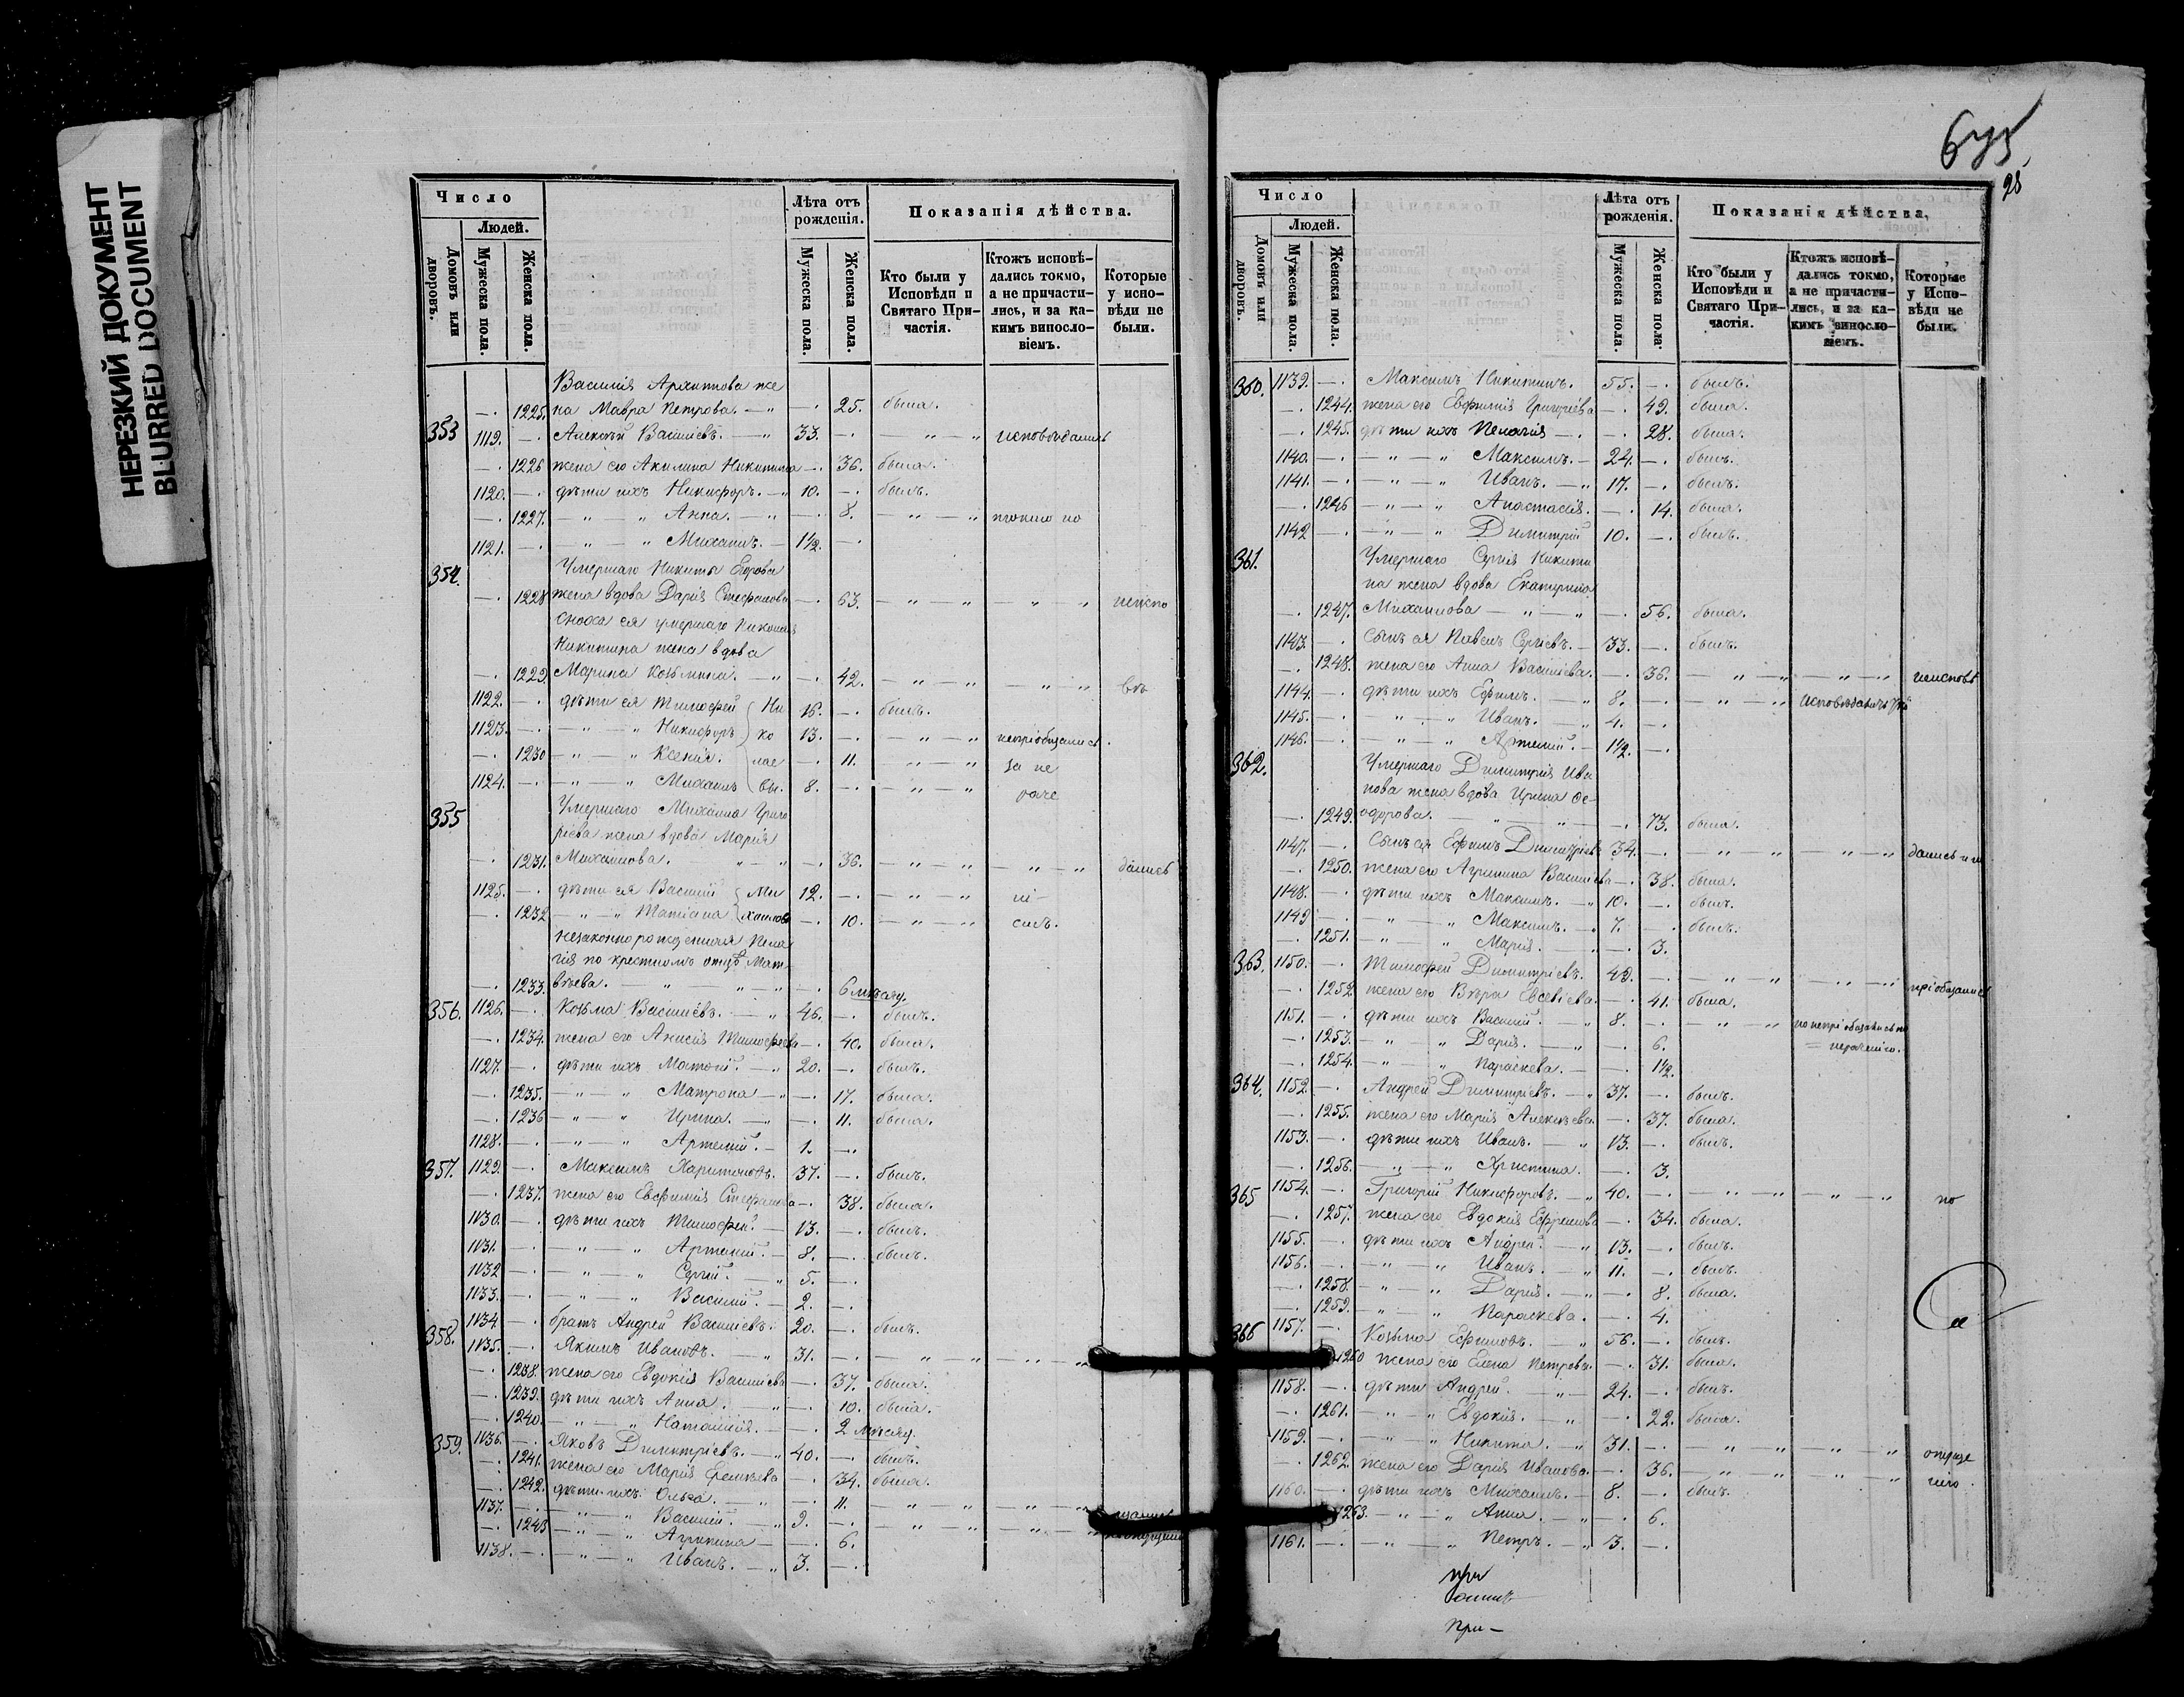 НЕРЕЗКИЙ ДОКУМЕНТ
BLURRED DOCUMENT
Число
Людей.
Домовъ или дворовъ.
Мужеска пола.
Женска пола.
Лѣта отъ рожденія.
Мужеска пола.
Женска пола.
Показанія дѣйства.
Кто были у Исповѣди и Святаго Причастія.
Ктожъ исповѣдались токмо, а не причастились, и за какимъ винословіемъ.
Которые у исповѣди не были.
Василія Архиппова же
—. 1225. на Мавра Петрова. — „ —. 25. была.
353 1119. —. Алексѣй Василіевъ. — „ 33. —. — „ — „ исповѣдались
—. 1226 жена его Акилина Никитина —. 36. была.
1120. —. дѣти ихъ Никифоръ. — „ 10. —. былъ.
—. 1227. — „ — „ Анна. — „ —. 8. — „ — „
1121. —. — „ — „ Михаилъ. — 1½. —.
354. Умершаго Никиты Егорова
—. 1228 жена вдова Дарія Стефанова —. 63. — „ — „ — „ — „ неиспо
Сноха ея умершаго Николая
Никитина жена вдова
—. 1229. Марина Козьмина. — „ —. 42. — „ — „ — „ — „ вѣ
1122. —. дѣти ея Тимофей Ни 16. —. былъ.
1123. —. — „ — „ Никифоръ ко 13. —. — „ — „ непріобщались.
—. 1230 — „ — „ Ксенія. лае —. 11. — „ — „ за не
1124. —. — „ — „ Михаилъ вы. 8. —. — „ — „ раче
355 Умершаго Михаила Григо
рієва жена вдова Марія
—. 1231. Михайлова. „ — „ —. 36. — „ — „ — „ — „ дались
1125. —. дѣти ея Василій Ми 12. —. — „ — „ ні-
—. 1232 — „ — „ Татіана хаиловы —. 10. — „ — „ емъ.
незаконнорожденная Пела
гія по крестномъ отцѣ Мат-
—. 1233. вѣева. — „ — „ — „ —. 6 мѣсяц.
356. 1126. —. Козьма Василіевъ. — „ 46. —. былъ.
—. 1234. жена его Анисія Тимофеева —. 40. была.
1127. —. дѣти ихъ Матѳій. — „ 20. —. былъ.
—. 1235. — „ — „ Матрона — „ —. 17. была.
—. 1236 — „ — „ Ирина. — „ —. 11. была.
1128. —. — „ — „ Артемий. — 1. —.
357. 1129. —. Максимъ Харитоновъ. 37. —. былъ.
—. 1237. жена его Евфимія Стефанова —. 38. была.
1130. —. дѣти ихъ Тимофей. — 13. —. былъ.
1131. —. — „ — „ Артемій. — 8. —. былъ.
1132 —. — „ — „ Сергій. — „ 5. —.
1133. —. — „ — „ Василій. — 2. —.
1134 —. братъ Андрей Василіевъ. 20. —. былъ.
358. 1135. —. Якимъ Ивановъ. — „ 31. —. — „ — „ — „ — „
—. 1238. жена его Евдокія Василіева —. 37. была.
—. 1239. дѣти ихъ Анна. — „ —. 10. была.
—. 1240. — „ — „ Наталия. — —. 2 мѣсяц.
359. 1136. —. Яковъ Димитріевъ. — „ 40. —. былъ.
—. 1241. жена его Марія Еремѣева —. 34. была.
—. 1242. дѣти ихъ Ольга. — „ —. 11. — „ — „ — „ — „
1137. —. — „ — „ Василій. — „ 9. —. — „ — „ — „ — „
—. 1243 — „ — „ Агрипина — —. 6.
1138. —. — „ — „ Иванъ. — „ 3. —.
675.
28
Число
Людей.
Домовъ или дворовъ.
Мужеска пола.
Женска пола.
Лѣта отъ рожденія.
Мужеска пола.
Женска пола.
Показанія дѣйства,
Кто были у Исповѣди и Святаго Причастія.
Ктожъ исповѣдались токмо, а не причастились, и за какимъ винословіемъ.
Которые у Исповѣди не были.
360. 1139. —. Максимъ Никитинъ. 55. —. былъ.
—. 1244. жена его Евфимія Григоріева —. 49. была.
—. 1245. дѣти ихъ Пелагія —. —. 28. была.
1140. —. — „ — „ Максимъ. — 24. —. былъ.
1141. —. — „ — „ Иванъ. — „ 17. —. былъ.
—. 1246 — „ — „ Анастасія. —. 14. была.
1142 —. — „ — „ Димитрій 10. —. былъ.
361. Умершаго Сергія Никити
на жена вдова Екатерина
—. 1247. Михаилова — „ — „ —. 56. была.
1143. —. Сынъ ея Павелъ Сергіевъ. — 33. —. былъ.
—. 1248. жена его Анна Василіева. —. 36. — „ — „ — „ — „ неисповѣ
1144. —. дѣти ихъ Ефимъ. — „ 8. —. — „ — „
1145. —. — „ — „ Иванъ. — „ 4. —.
1146. —. — „ — „ Артемій. — 1½. —.
362. Умершаго Димитрія Ива
нова жена вдова Ирина Ѳе-
—. 1249. одорова. — „ — „ — —. 73. была.
1147. —. Сынъ ея Ефимъ Димитріевъ 34. —. — „ — „ — „ — „ дались и не
—. 1250. жена его Агрипина Василіева —. 38. была.
1148. —. дѣти ихъ Максимъ. — „ 10. —. былъ.
1149 —. — „ — „ Максимъ. — „ 7. —. былъ.
—. 1251. — „ — „ Марія. — „ —. 3.
363. 1150. —. Тимофей Димитріевъ. 42. —. — „ — „ — „ — „ пріобщались
—. 1252 жена его Вѣра Евсевіева. —. 41. была.
1151. —. дѣти ихъ Василій. — „ 8. —. — „ — „ но непріобщались по
—. 1253. — „ — „ Дарія. — „ —. 6. — нераченію.
—. 1254. — „ — „ Параскева. — —. 1½.
364. 1152. —. Андрей Димитріевъ. — „ 37. —. былъ.
—. 1255. жена его Марія Алексѣева. —. 37. была.
1153. —. дѣти ихъ Иванъ. — „ 13. —. былъ.
—. 1256. — „ — „ Христина. — —. 3.
365 1154. —. Григорій Никифоровъ. — „ 40. —. — „ — „ — „ — „ по
—. 1257. жена его Евдокія Ефремова —. 34. была.
1155. —. дѣти ихъ Андрей. — „ 13. —. былъ.
1156. —. — „ — „ Иванъ. — „ 11. —. былъ.
—. 1258. — „ — „ Дарія. — „ —. 8. была.
—. 1259. — „ — „ Параскева. —. 4.
366 1157. —. Козьма Ефимовъ. — „ 56. —. былъ.
1260 жена его Елена Петрова. —. 31. была.
1158. —. дѣти Андрей. — „ — 24. —. былъ.
—. 1261. — „ — „ Евдокія. — „ —. 22. была.
1159. —. — „ — „ Никита. — „ 31. —. — „ — „ — „ — „
—. 1262. жена его Дарія Иванова. —. 36. — „ — „ — „ — „
1160. —. дѣти ихъ Михаилъ. — 8. —. былъ.
1263. — „ — „ Анна. — „ —. 6.
1161. —. — „ — „ Петръ. — „ 3. —.
при
при —